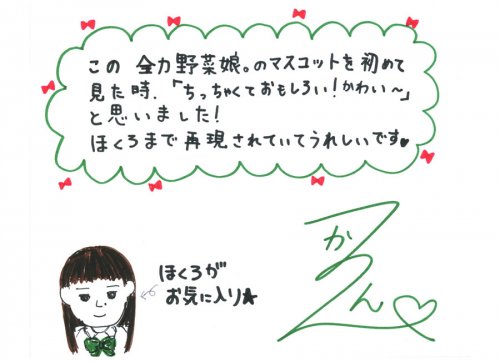 この 全力野菜娘。のマスコットを初めて
見た時、「ちっちゃくておもしろい!かわい〜」
と思いました!
ほくろまで再現されていてうれしいです♥
ほくろが
お気に入り★
かりん♡